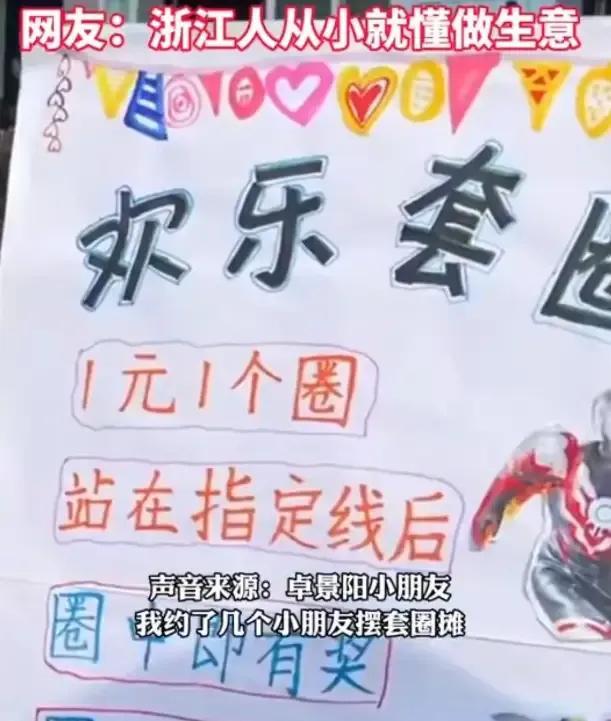 网友：浙江人从小就懂做生意
欢乐套圈
1元1个圈
站在指定线后
声音来源：卓景阳小朋友
我约了几个小朋友摆套圈摊
圈中即有奖